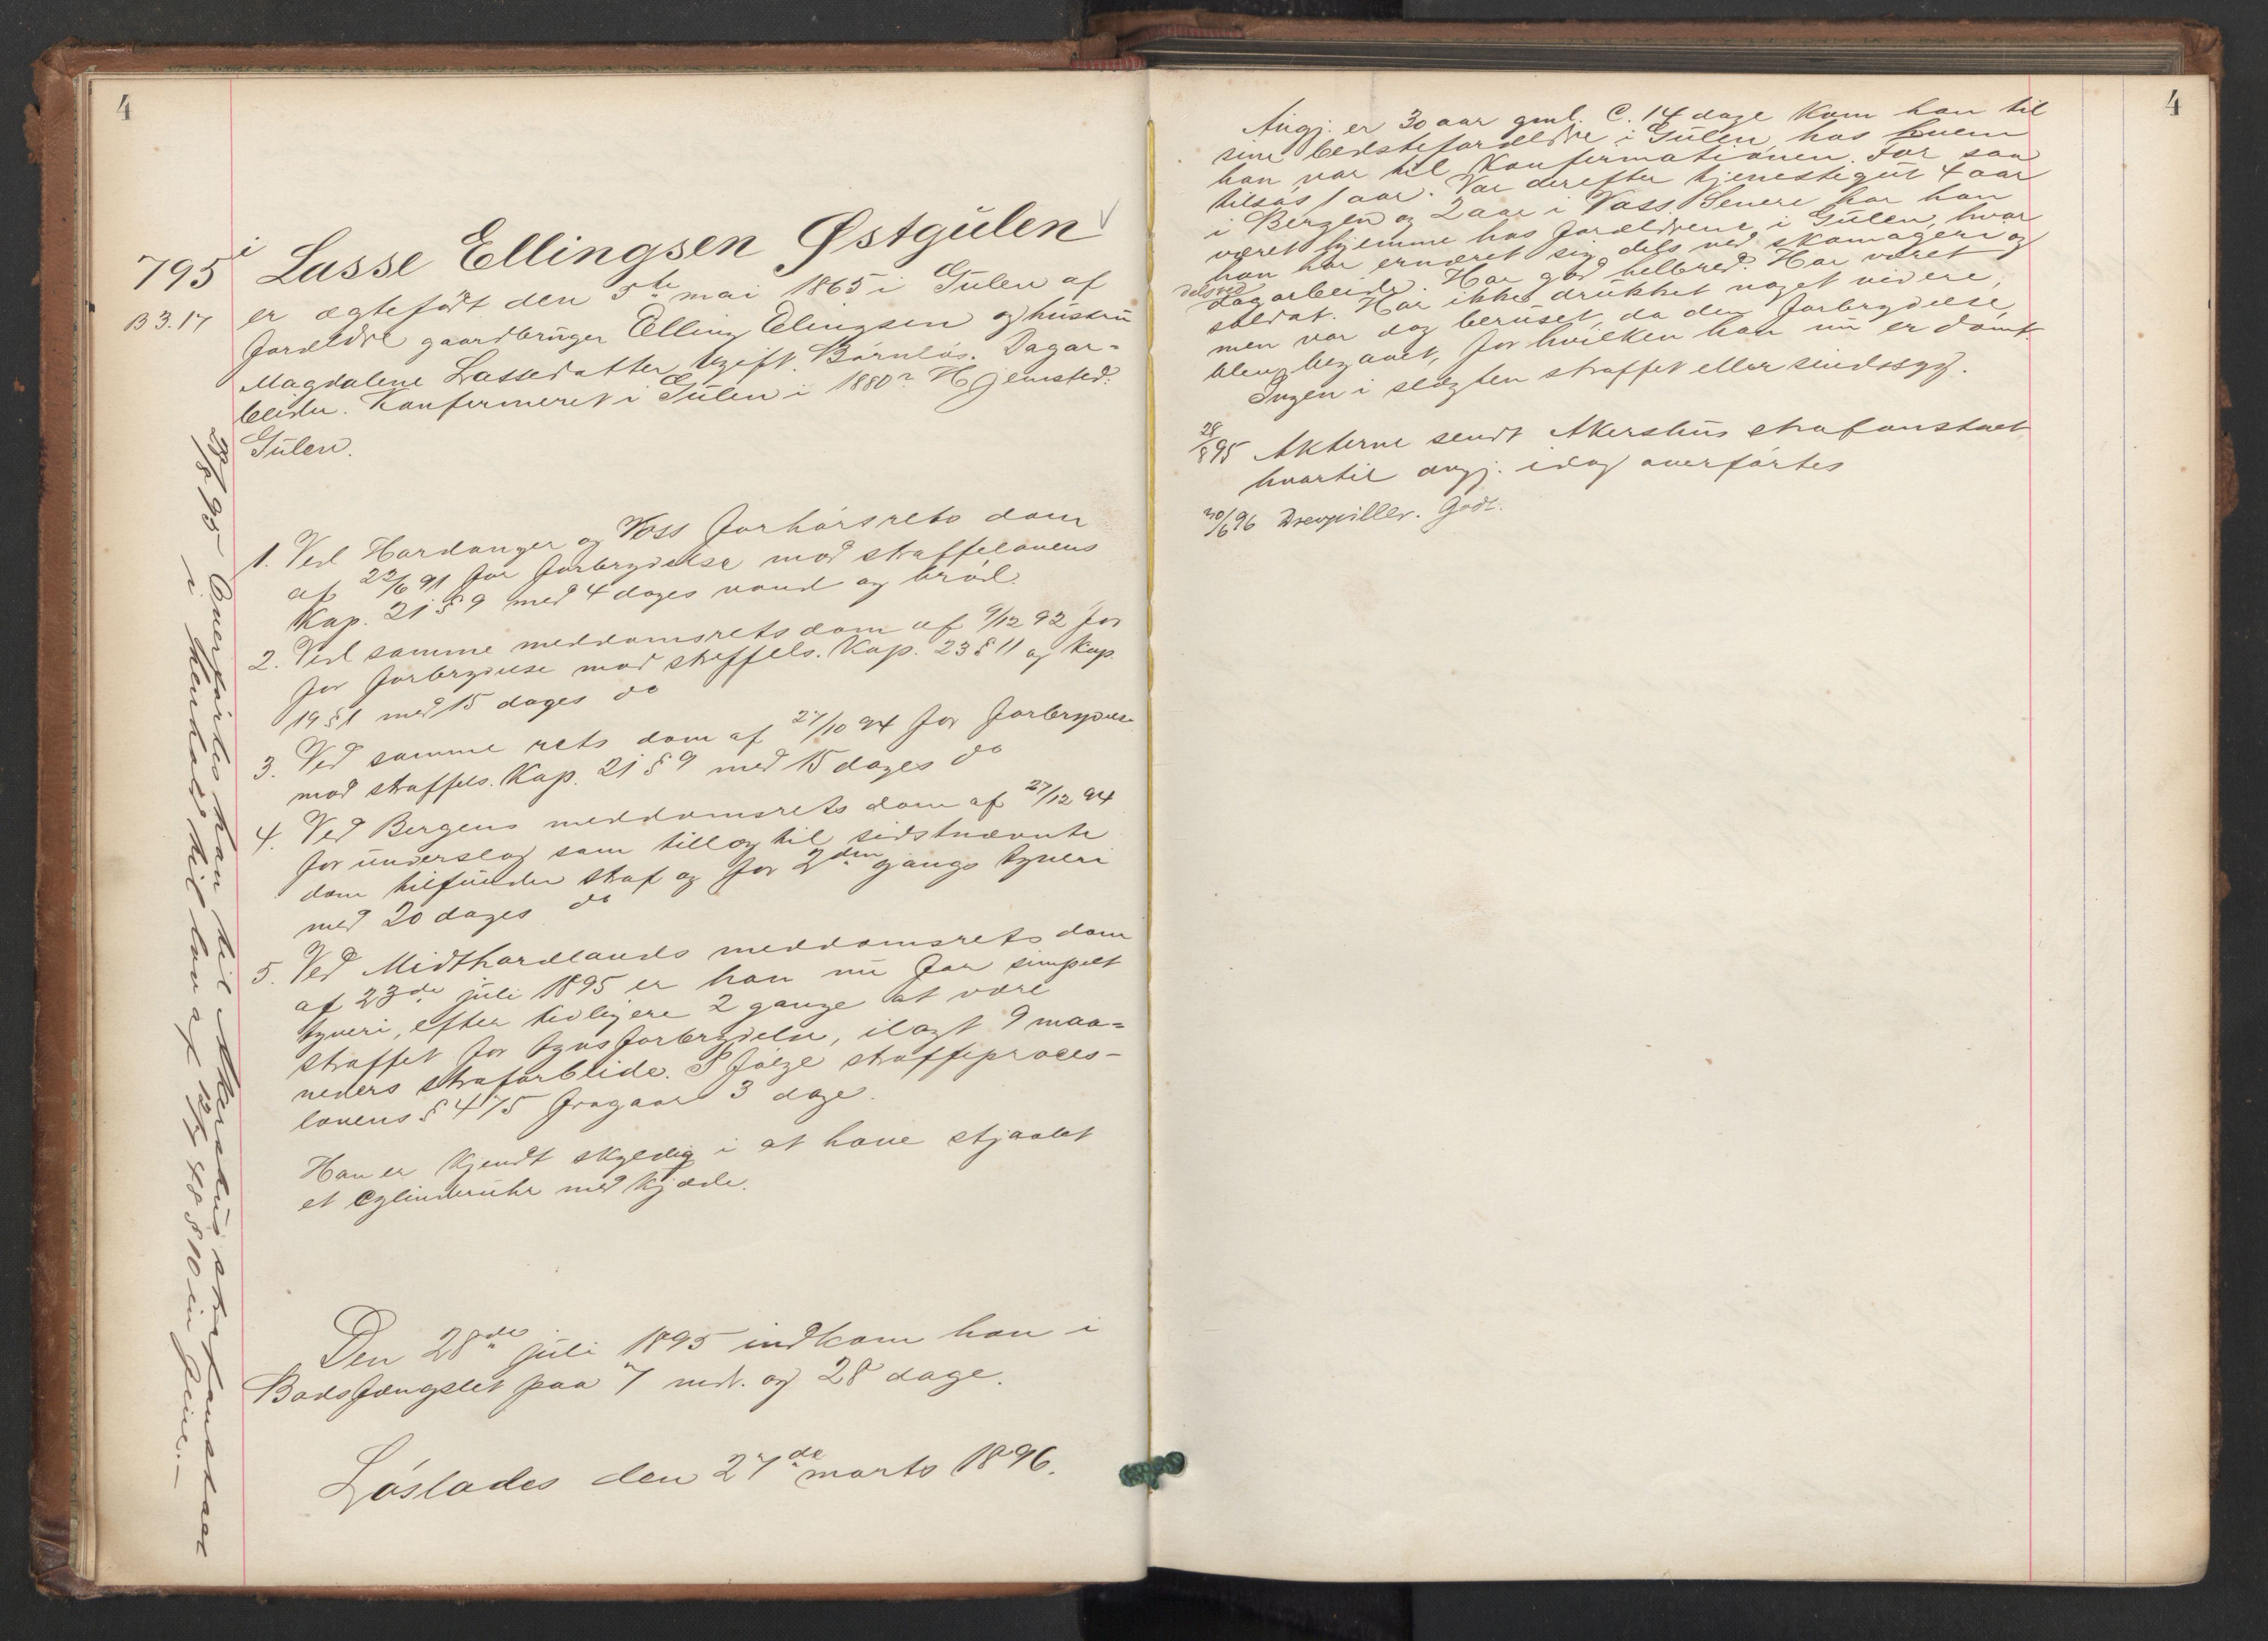 4
795 i
B 3.17
Lasse Ellingsen Østgülen
er ægtefødt den 5te mai 1865 i Gülen af
forældre gaardbrüger Elling Elingsen og hüstrü
Magdalene Lassedatter, Ugift. Børnløs. Dagar-
beider. Konfirmeret i Gülen i 1880? Hjemsted:
Gülen.
1. Ved Hardanger og Voss forhørsrets dom
af 22/6 91 for forbrydelse mod straffelovens
Kap. 21 § 9 med 4 dages vand og brød.
2. Ved samme meddomsrets dom af 9/12 92 for
for forbrydelse mod straffels. Kap. 23 § 11 og Kap.
19 § 1 med 15 dages do
3. Ved samme rets dom af 27/10 94 for forbrydelse
mod straffels. Kap. 21 § 9 med 15 dages do
4. Ved Bergens meddomsrets dom af 27/12 94
for ünderslag som tillæg til sidstnævnte
dom tilfünden straf og for 2den gangs tyveri
med 20 dages do
5. Ved Midthordlands meddomsrets dom
af 23de jüli 1895 er han nü for simpelt
tyveri, efter tidligere 2 gange at være
straffet for tyvsforbrydelse, ilagt 9 maa-
neders strafarbeide. I følge straffeproces-
lovens § 475 fragaar 3 dage.
Han er kjendt skyldig i at have stjaalet
et Cylinderühr med kjæde.
Den 28de jüli 1895 indkom han i
Bodsfængslet paa 7 mdr. og 28 dage.
Løslades den 27de marts 1896.
28/8 95 Overførtes han til Akershüs strafanstalt
i henhold til lov af 12/7 48 § 10 in fine.-
4
Angj. er 30 aar gml. C. 14 dage kom han til
sine bedsteforældre i Gülen, hos hvem
han var til Konfirmationen. For saa
tilsøs 1 aar. Var derefter tjenestegüt 4 aar
i Bergen og 2 aar i Voss. Senere har han
været hjemme hos forældrene i Gülen, hvor
han har ernæret sig dels ved skomageri og
dels ved
Dagarbeide. Har god helbred. Har været
soldat. Har ikke drükket noget videre,
men var dog berüset, da den forbrydelse
blev begaaet, for hvilken han nü er dømt.
Ingen i slægten straffet eller sindssyg.
28/8 95 Akterne sendt Akershüs strafanstalt
hvortil angj. idag overførtes
30/6 96 Godt.